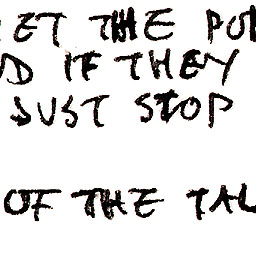 ET THE PO
D IF THEY
JUST STOP
OF THE TAL